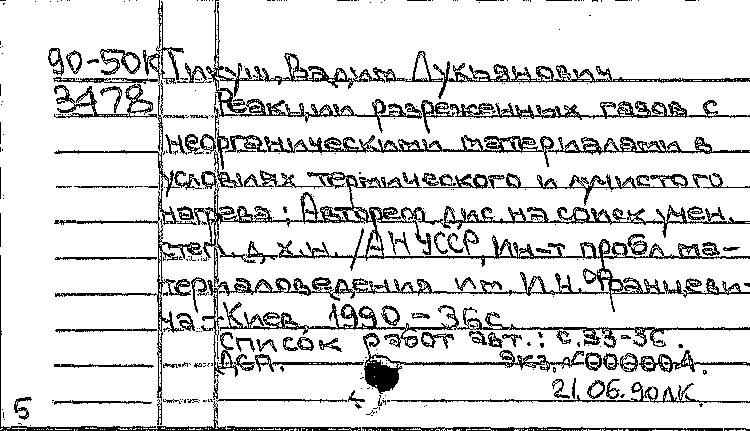 90-50К Тикуш, Вадим Лукьянович.
3478 Реакции разреженных газов с
неорганическими материалами в
условиях термического и лучистого
нагрева: Автореф. дис. на соиск. учен.
степ. д.х.н. /АН УССР, Ин-т пробл. ма-
териаловедения им. И.Н. Францеви-
ча -Киев, 1990. - 36с.
Список работ авт.: с.33-36.
ДСП. Экз. №000001.
21.06.90ЛК.
5